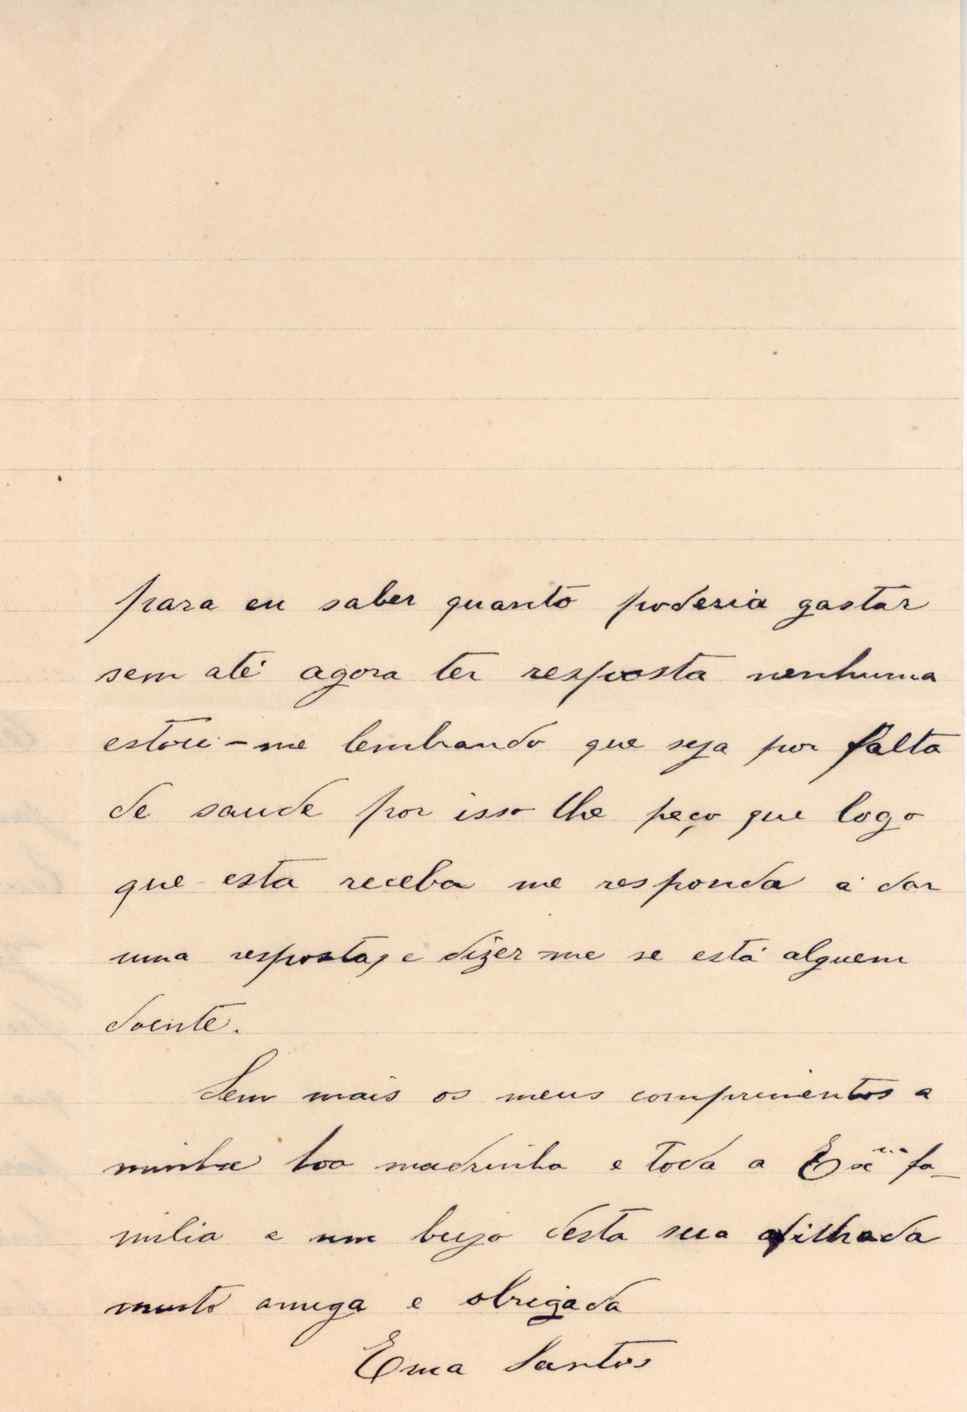 para eu saber quanto poderia gastar
sem até agora ter resposta nenhuma
estou-me lembrando que seja por falta
de saude por isso lhe peço que logo
que esta receba me responda a dar
uma resposta, e dizer-me se está alguem
doente.
Sem mais os meus comprimentos a
minha boa madrinha e toda a Exᵐᵃ fa-
milia e um beijo desta sua afilhada
muito amiga e obrigada
Ema Santos